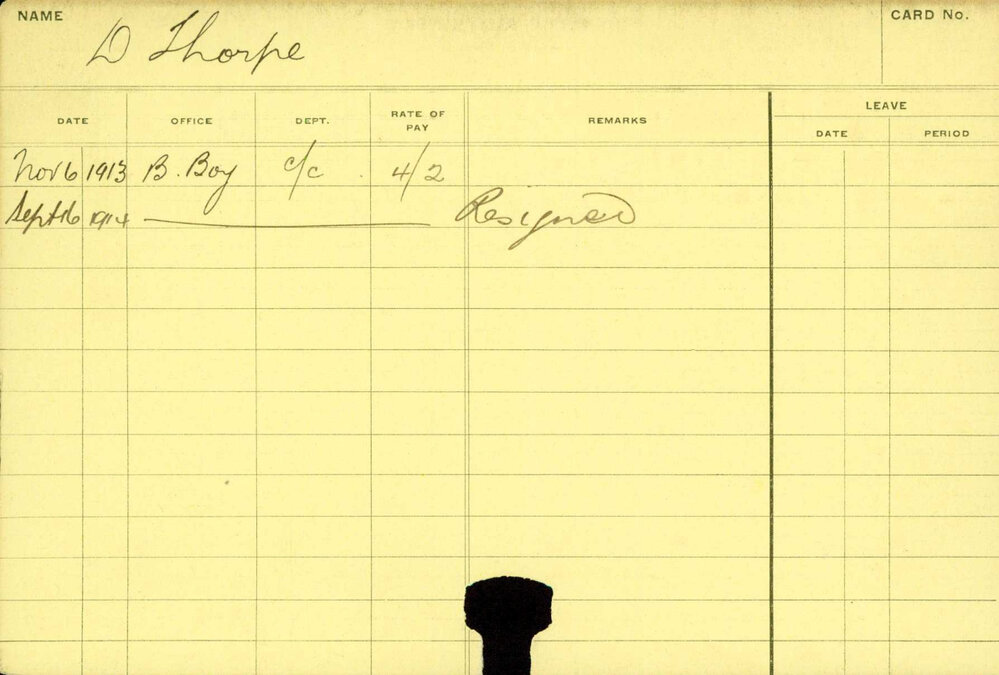 NAME CARD No.
D Thorpe
LEAVE
DATE OFFICE DEPT. RATE OF PAY REMARKS DATE PERIOD
Nov 6 1913 B. Boy c/c 4/2
Sept 16 1914 Resigned